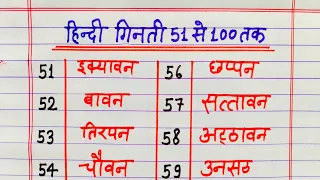 हिन्दी गिनती 51 से 100 तक
51 इक्यावन 56 छप्पन
52 बावन 57 सत्तावन
53 तिरपन 58 अट्ठावन
54 चौवन 59 उनसठ